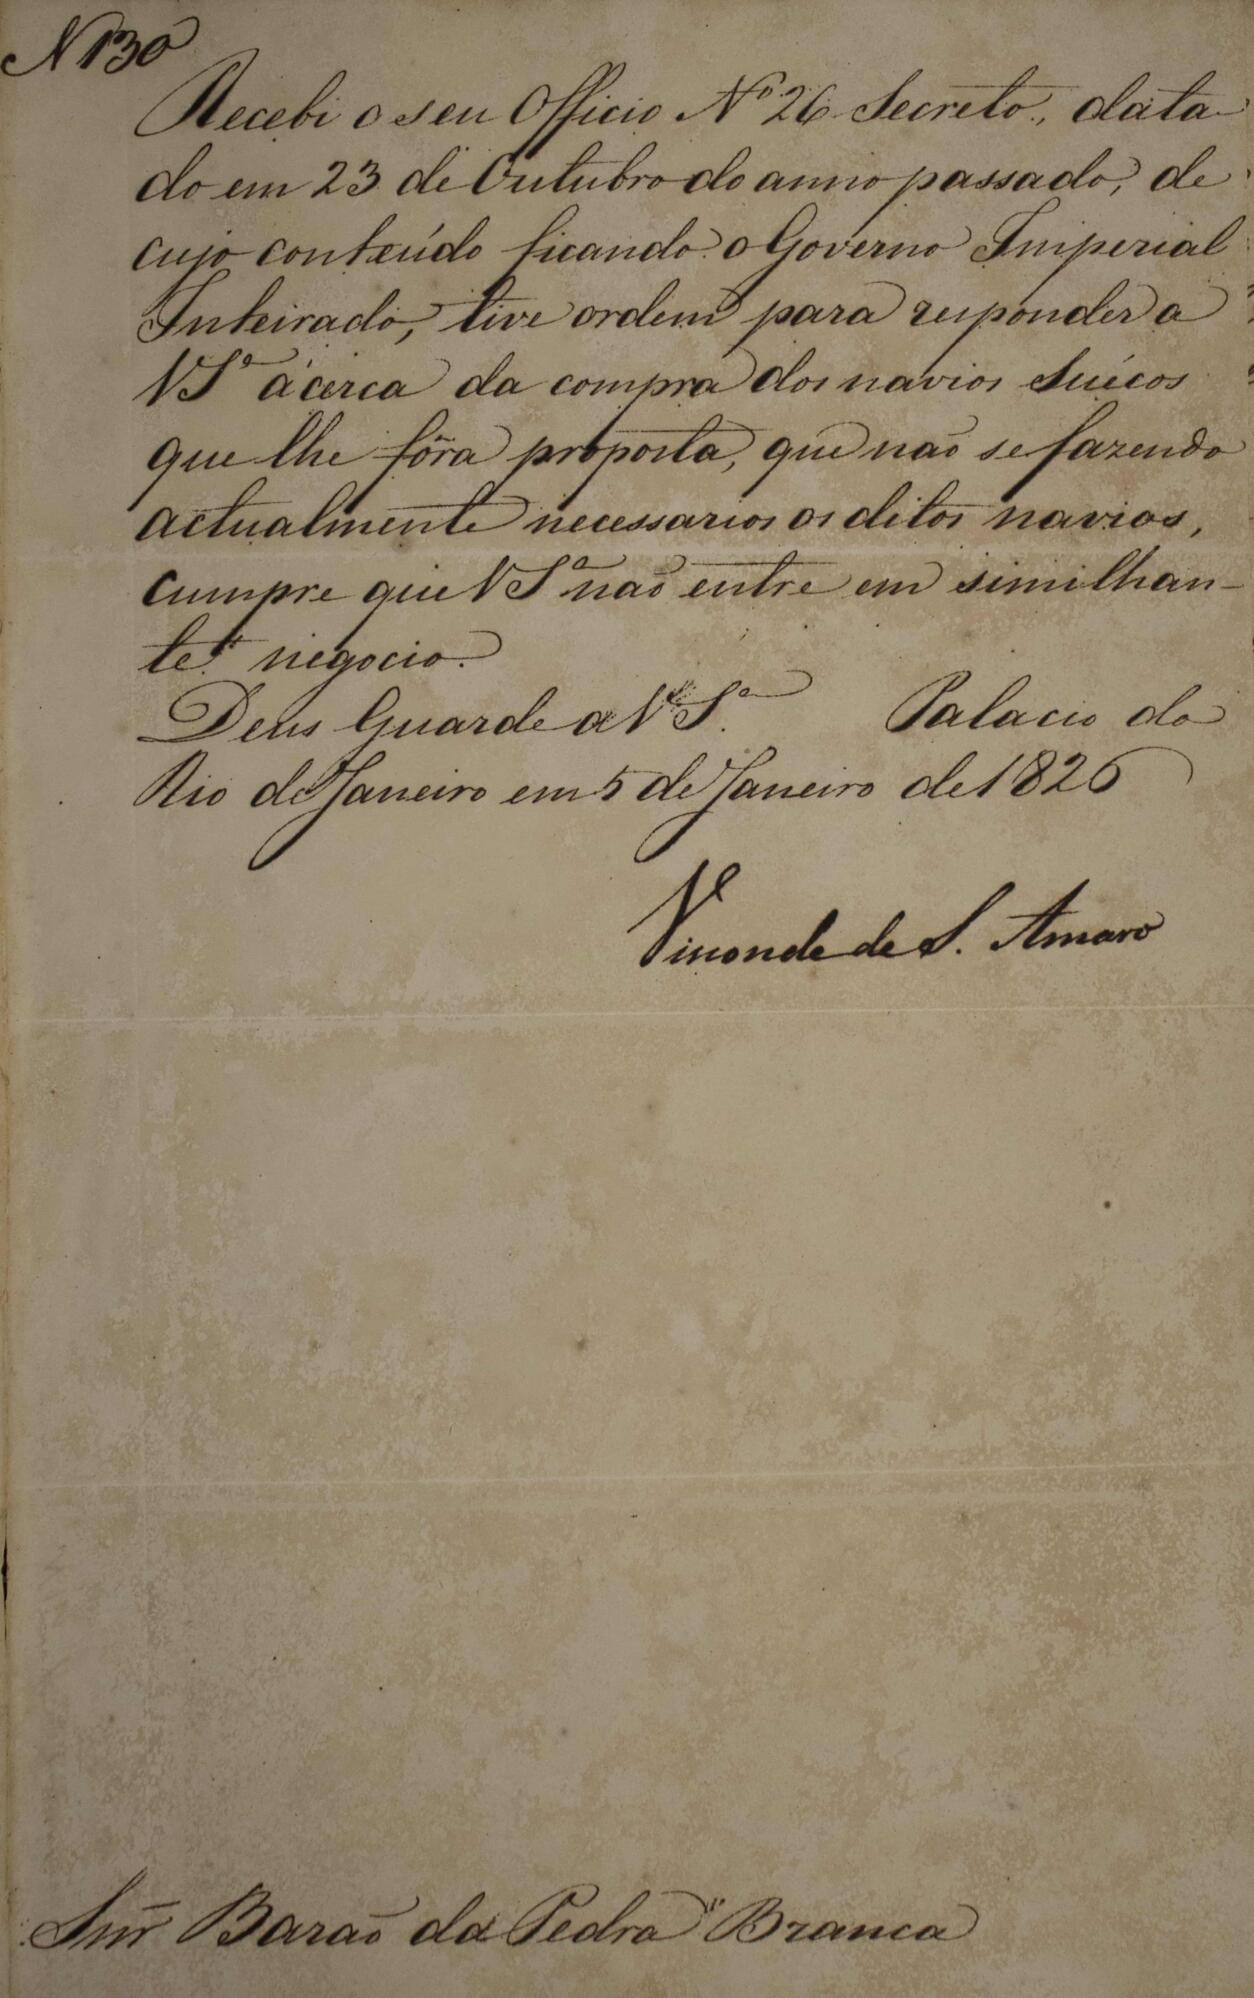 N 130
Recebi o seu Officio Nº 26 Secreto, data-
do em 23 de Outubro do anno passado, de
cujo conteúdo ficando o Governo Imperial
Inteirado, tive ordem para responder a
VSª ácerca da compra dos navios Suécos
que lhe fôra proposta, que não se fazendo
actualmente necessarios os ditos navios,
cumpre que VSª não entre em similhan-
te negocio.
Deus Guarde a VSª. Palacio do
Rio de Janeiro em 5 de Janeiro de 1826
Visconde de S. Amaro
Snr Barão da Pedra Branca